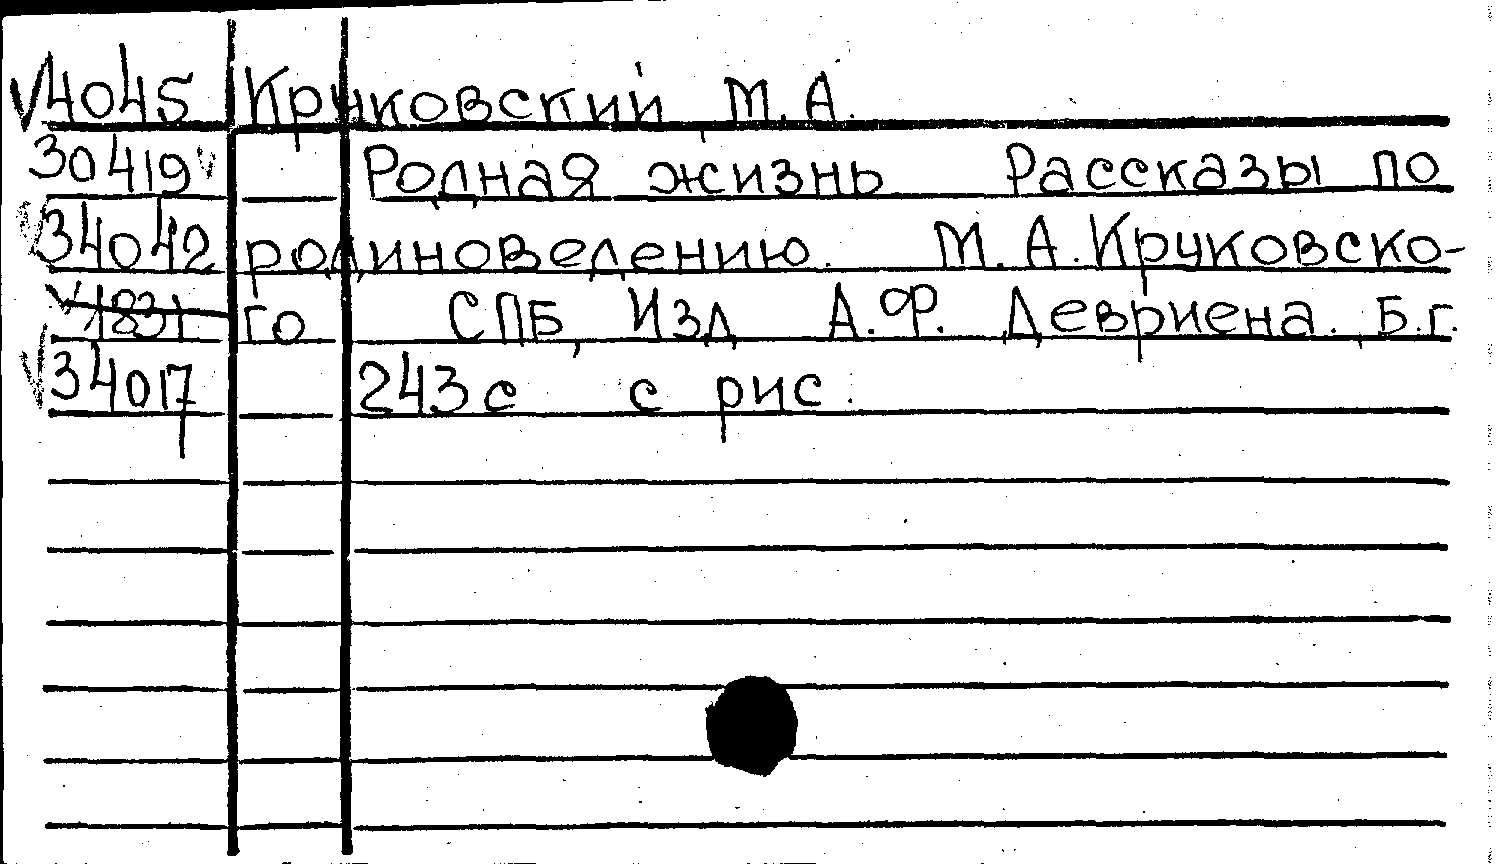 √4045 Круковский М.А.
30419 √ Родная жизнь Рассказы по
√ 34042 родиноведению. М.А.Круковско-
√ 1831 го СПБ, Изд А.Ф. Девриена. Б.г.
√ 34017 243с с рис.